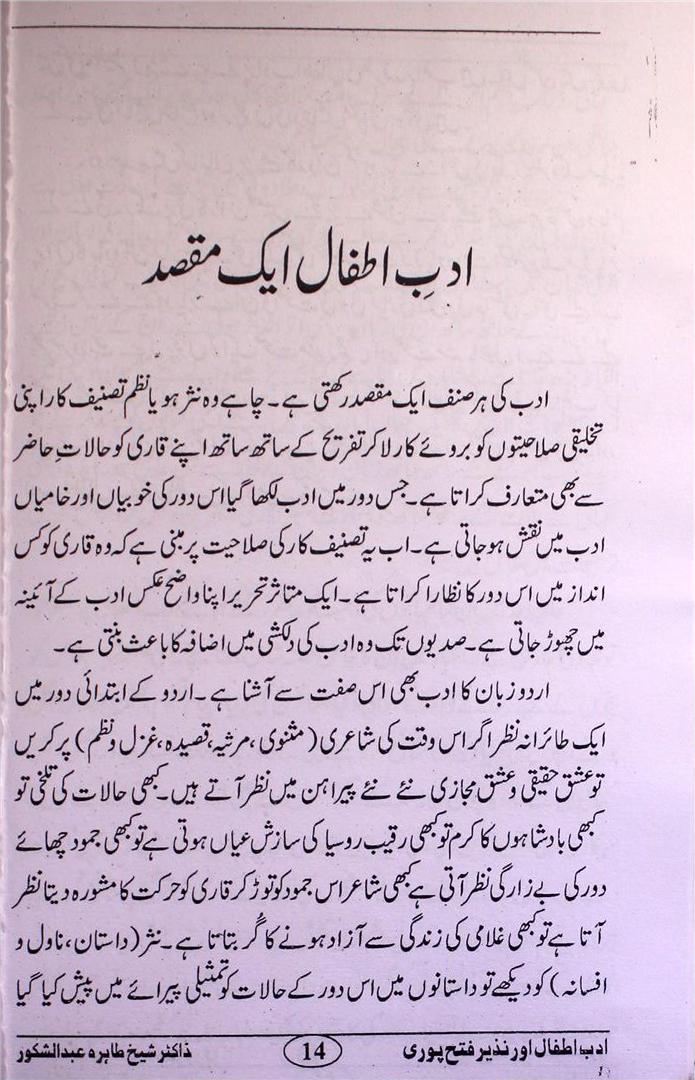 ادبِ اطفال ایک مقصد
ادب کی ہر صنف ایک مقصد رکھتی ہے۔ چاہے وہ نثر ہو یا نظم تصنیف کار اپنی
تخلیقی صلاحیتوں کو بروئے کار لا کر تفریح کے ساتھ ساتھ اپنے قاری کو حالاتِ حاضر
سے بھی متعارف کراتا ہے۔ جس دور میں ادب لکھا گیا اس دور کی خوبیاں اور خامیاں
ادب میں نقش ہو جاتی ہے۔ اب یہ تصنیف کار کی صلاحیت پر مبنی ہے کہ وہ قاری کو کس
انداز میں اس دور کا نظارا کراتا ہے۔ ایک متاثر تحریر اپنا واضح عکس ادب کے آئینہ
میں چھوڑ جاتی ہے۔ صدیوں تک وہ ادب کی دلکشی میں اضافہ کا باعث بنتی ہے۔
اردو زبان کا ادب بھی اس صفت سے آشنا ہے۔ اردو کے ابتدائی دور میں
ایک طائرانہ نظر اگر اس وقت کی شاعری (مثنوی، مرثیہ، قصیدہ، غزل و نظم) پر کریں
تو عشق حقیقی و عشق مجازی نئے نئے پیراہن میں نظر آتے ہیں۔ کبھی حالات کی تلخی تو
کبھی بادشاہوں کا کرم تو کبھی رقیب روسیا کی سازش عیاں ہوتی ہے تو کبھی جمود چھائے
دور کی بے زارگی نظر آتی ہے کبھی شاعر اس جمود کو توڑ کر قاری کو حرکت کا مشورہ دیتا نظر
آتا ہے تو کبھی غلامی کی زندگی سے آزاد ہونے کا گُر بتاتا ہے۔ نثر (داستان، ناول و
افسانہ) کو دیکھے تو داستانوں میں اس دور کے حالات کو تمثیلی پیرائے میں پیش کیا گیا
ادبِ اطفال اور نذیر فتح پوری 14 ڈاکٹر شیخ طاہرہ عبدالشکور